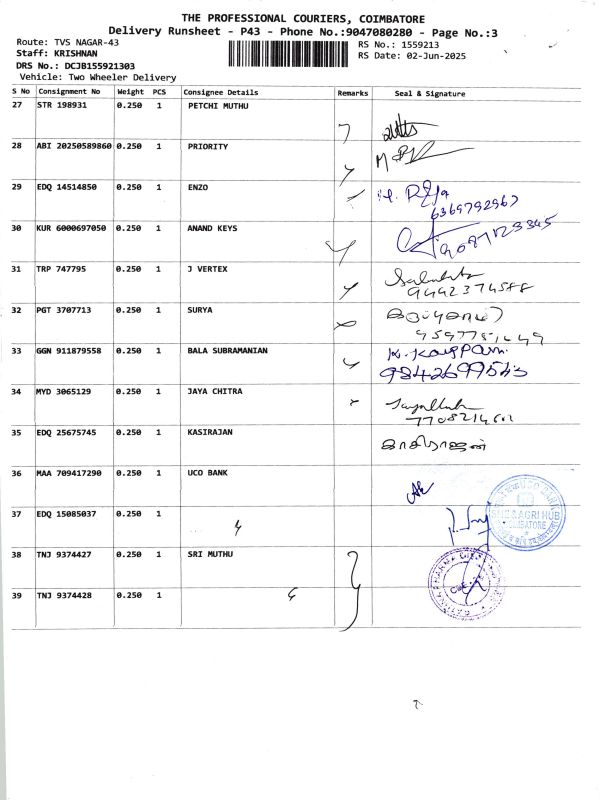 THE PROFESSIONAL COURIERS, COIMBATORE
Delivery Runsheet - P43 - Phone No.:9047080280 - Page No.:3
Route: TVS NAGAR-43
Staff: KRISHNAN
DRS No.: DCJB155921303
Vehicle: Two Wheeler Delivery
RS No.: 1559213
RS Date: 02-Jun-2025
S No Consignment No Weight PCS Consignee Details Remarks Seal & Signature
27 STR 198931 0.250 1 PETCHI MUTHU
28 ABI 20250589860 0.250 1 PRIORITY
29 EDQ 14514850 0.250 1 ENZO
6369792967
30 KUR 6000697050 0.250 1 ANAND KEYS
9087123345
31 TRP 747795 0.250 1 J VERTEX
9442374588
32 PGT 3707713 0.250 1 SURYA
33 GGN 911879558 0.250 1 BALA SUBRAMANIAN
9842699543
34 MYD 3065129 0.250 1 JAYA CHITRA
35 EDQ 25675745 0.250 1 KASIRAJAN
காசிராஜன்
36 MAA 709417290 0.250 1 UCO BANK
UCO BANK
& AGRI HUB
COIMBATORE
37 EDQ 15085037 0.250 1
38 TNJ 9374427 0.250 1 SRI MUTHU
39 TNJ 9374428 0.250 1